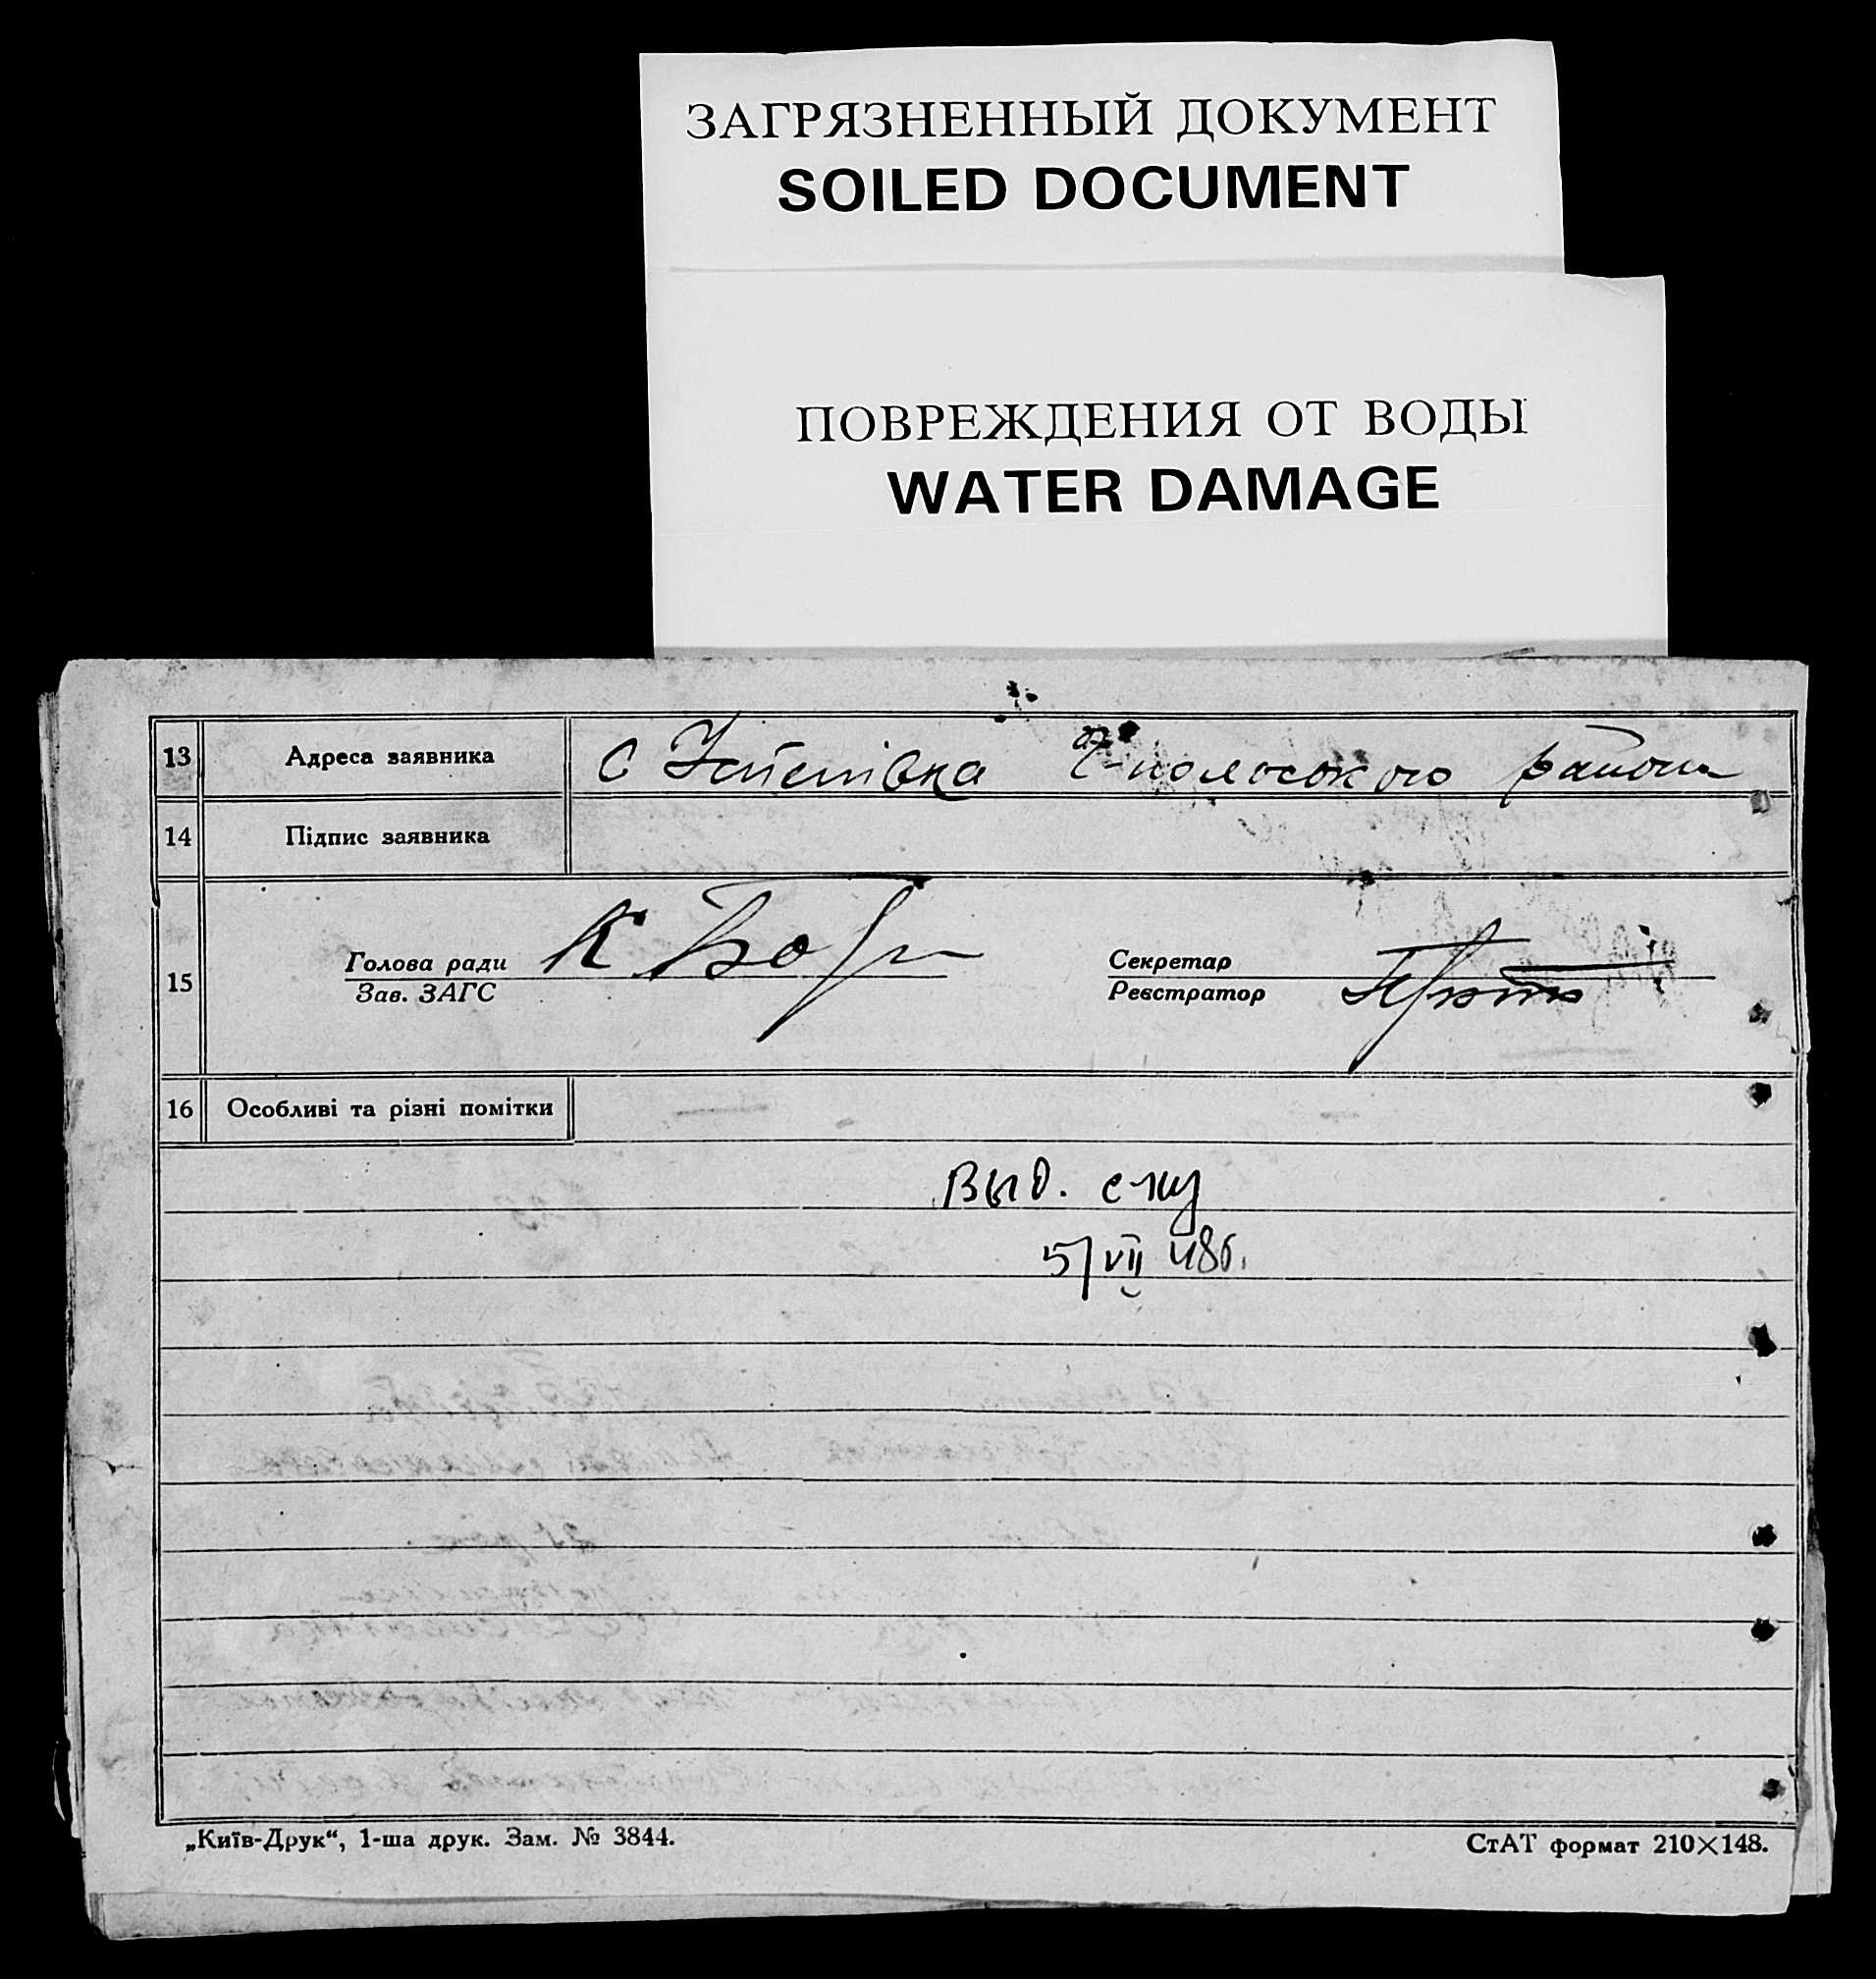 ЗАГРЯЗНЕННЫЙ ДОКУМЕНТ
SOILED DOCUMENT
ПОВРЕЖДЕНИЯ ОТ ВОДЫ
WATER DAMAGE
13 Адреса заявника с району
14 Підпис заявника
15 Голова ради К Секретар
Зав. ЗАГС Реєстратор
16 Особливі та різні помітки
Выд.
5/VII 48г.
„Київ-Друк“, 1-ша друк. Зам. № 3844. СтАТ формат 210×148.